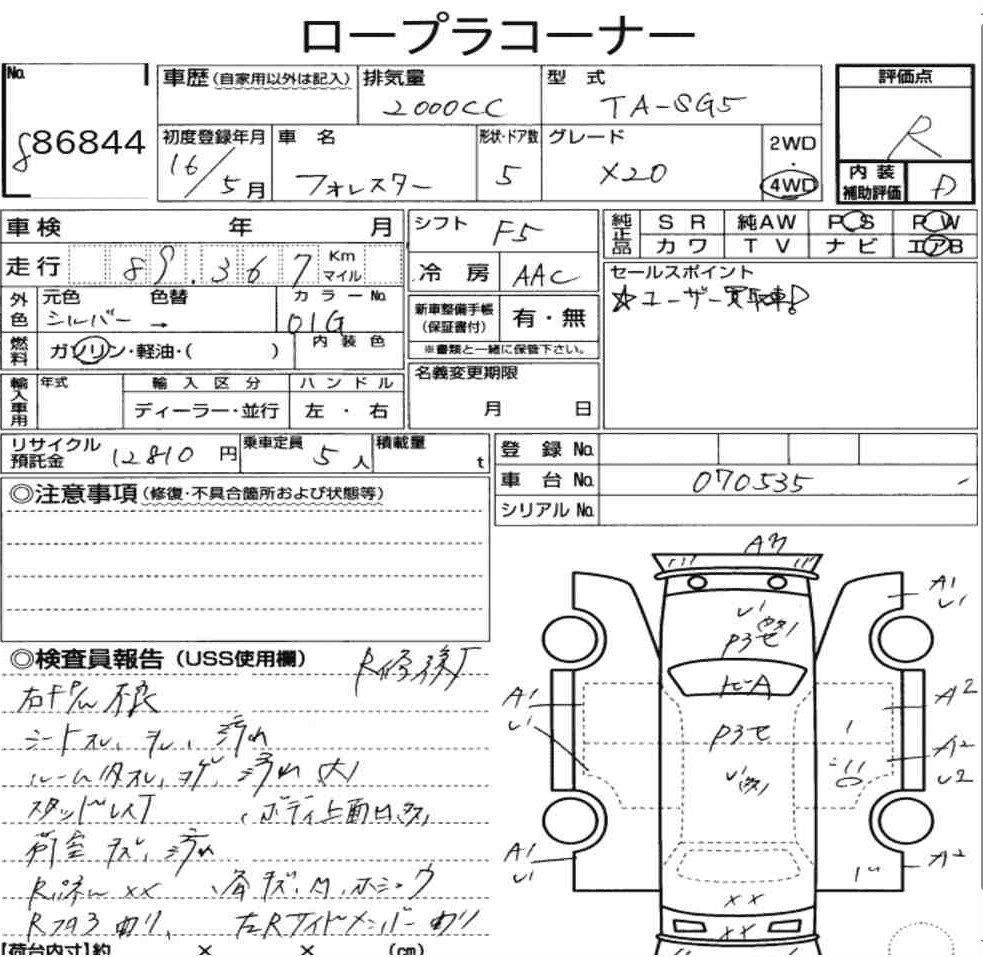 ロープラコーナー
No. 886844
車歴 (自家用以外は記入) 排気量 2000CC 型式 TA-SG5 評価点 R
初度登録年月 16/5月 車名 フォレスター 形状・ドア数 5 グレード X20 2WD・4WD
内装補助評価 D
車検 年 月
シフト F5
純正品 SR 純AW PS PW
カワ TV ナビ エアB
走行 89.367 Km マイル
冷房 AAC
セールスポイント
☆ユーザー買取車!
外色 元色 シルバー → 色替 カラーNo. 01G
新車整備手帳(保証書付) 有・無
※書類と一緒に保管下さい。
燃料 ガソリン・軽油・( ) 内装色
名義変更期限
月 日
輸入車用 年式 輸入区分 ハンドル
ディーラー・並行 左・右
リサイクル預託金 12810円 乗車定員 5人 積載量 t
登録No.
車台No. 070535
シリアルNo.
◎注意事項(修復・不具合箇所および状態等)
◎検査員報告(USS使用欄) R修復
シートスレ、汚れ
ルーム内スレ、汚れ 大
スタッドレス ボディ上面凹
荷室 キズ、汚れ
XX
Rフロア曲り、左Rサイドメンバー曲り
【荷台内寸】約 × × (cm)
A1
A1
A2
A1
A2
A1
A2
XX
XX